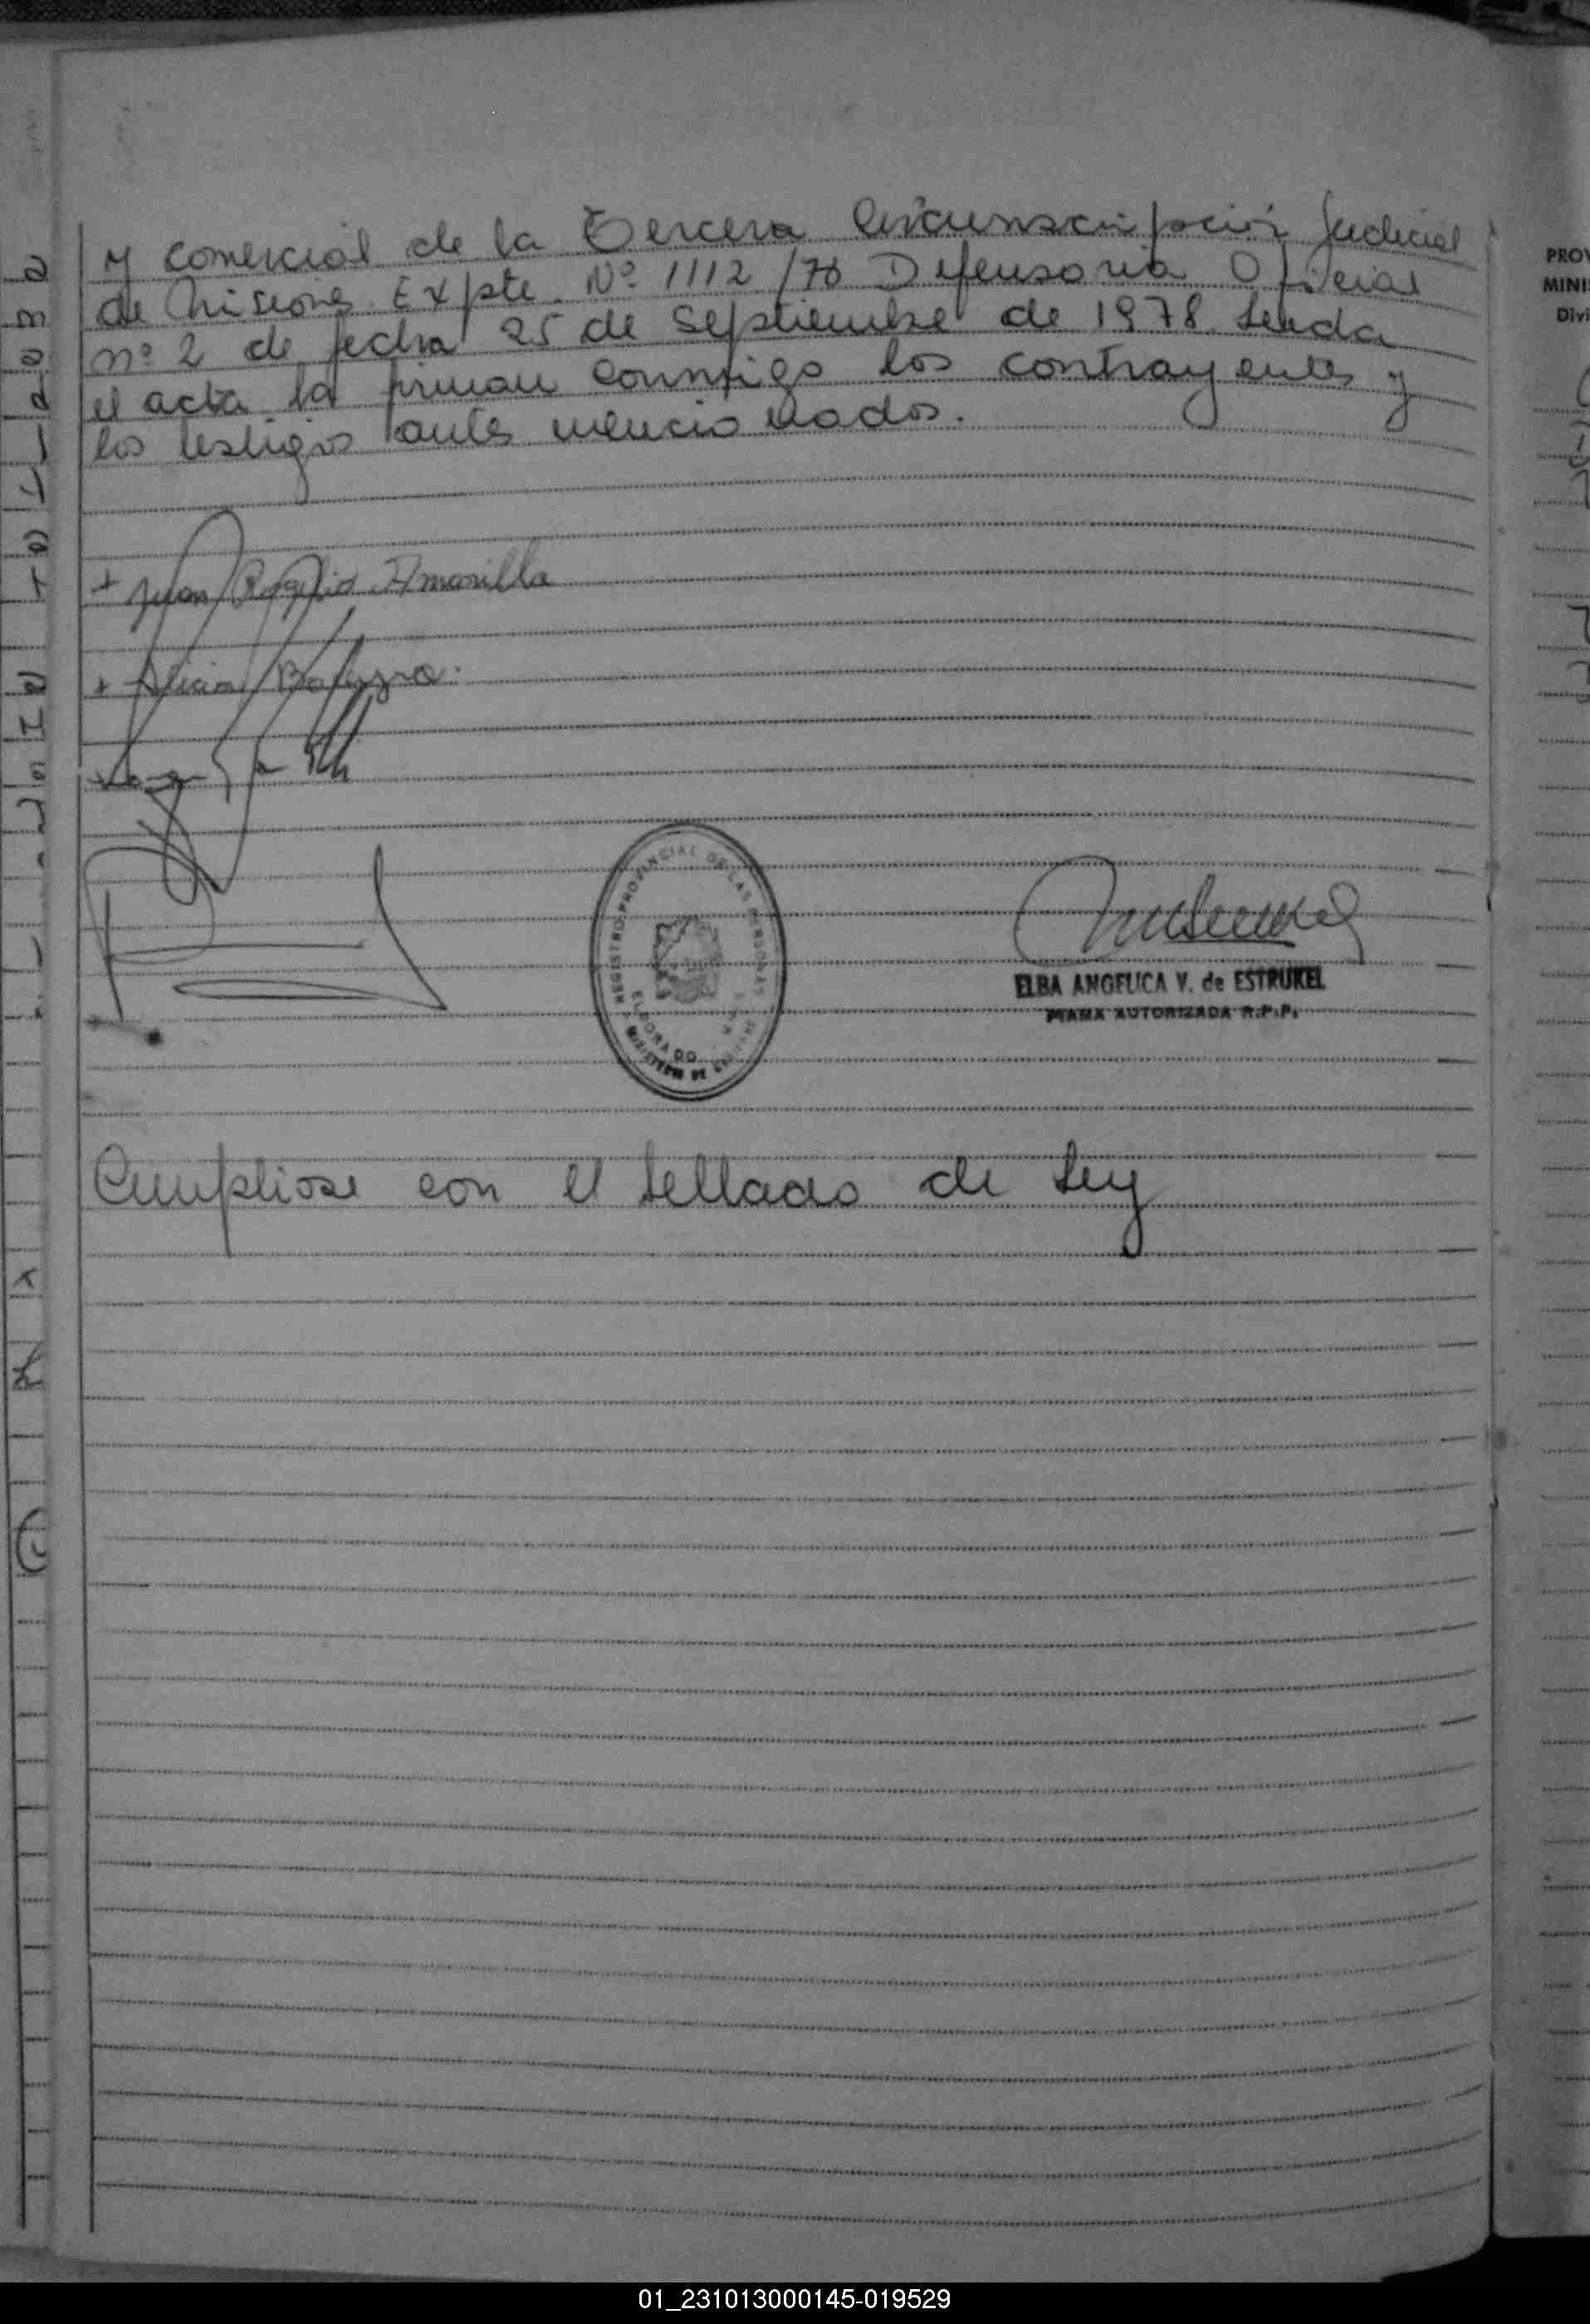 y comercial de la Tercera Circunscripción Judicial
de Misiones Expte. Nº 1112/78 Defensoria Oficial
nº 2 de fecha 25 de Septiembre de 1978. Leida
el acta la firman conmigo los contrayentes y
los testigos antes mencionados.
+ Juan Rogelio Amarilla
+ Alicia
REGISTRO PROVINCIAL DE LAS PERSONAS
ELDORADO
MINISTERIO DE
ELBA ANGELICA V. de ESTRUKEL
FIRMA AUTORIZADA R.P.P.
Cumpliose con el Sellado de Ley
PROV
MINI
Divi
01_231013000145-019529